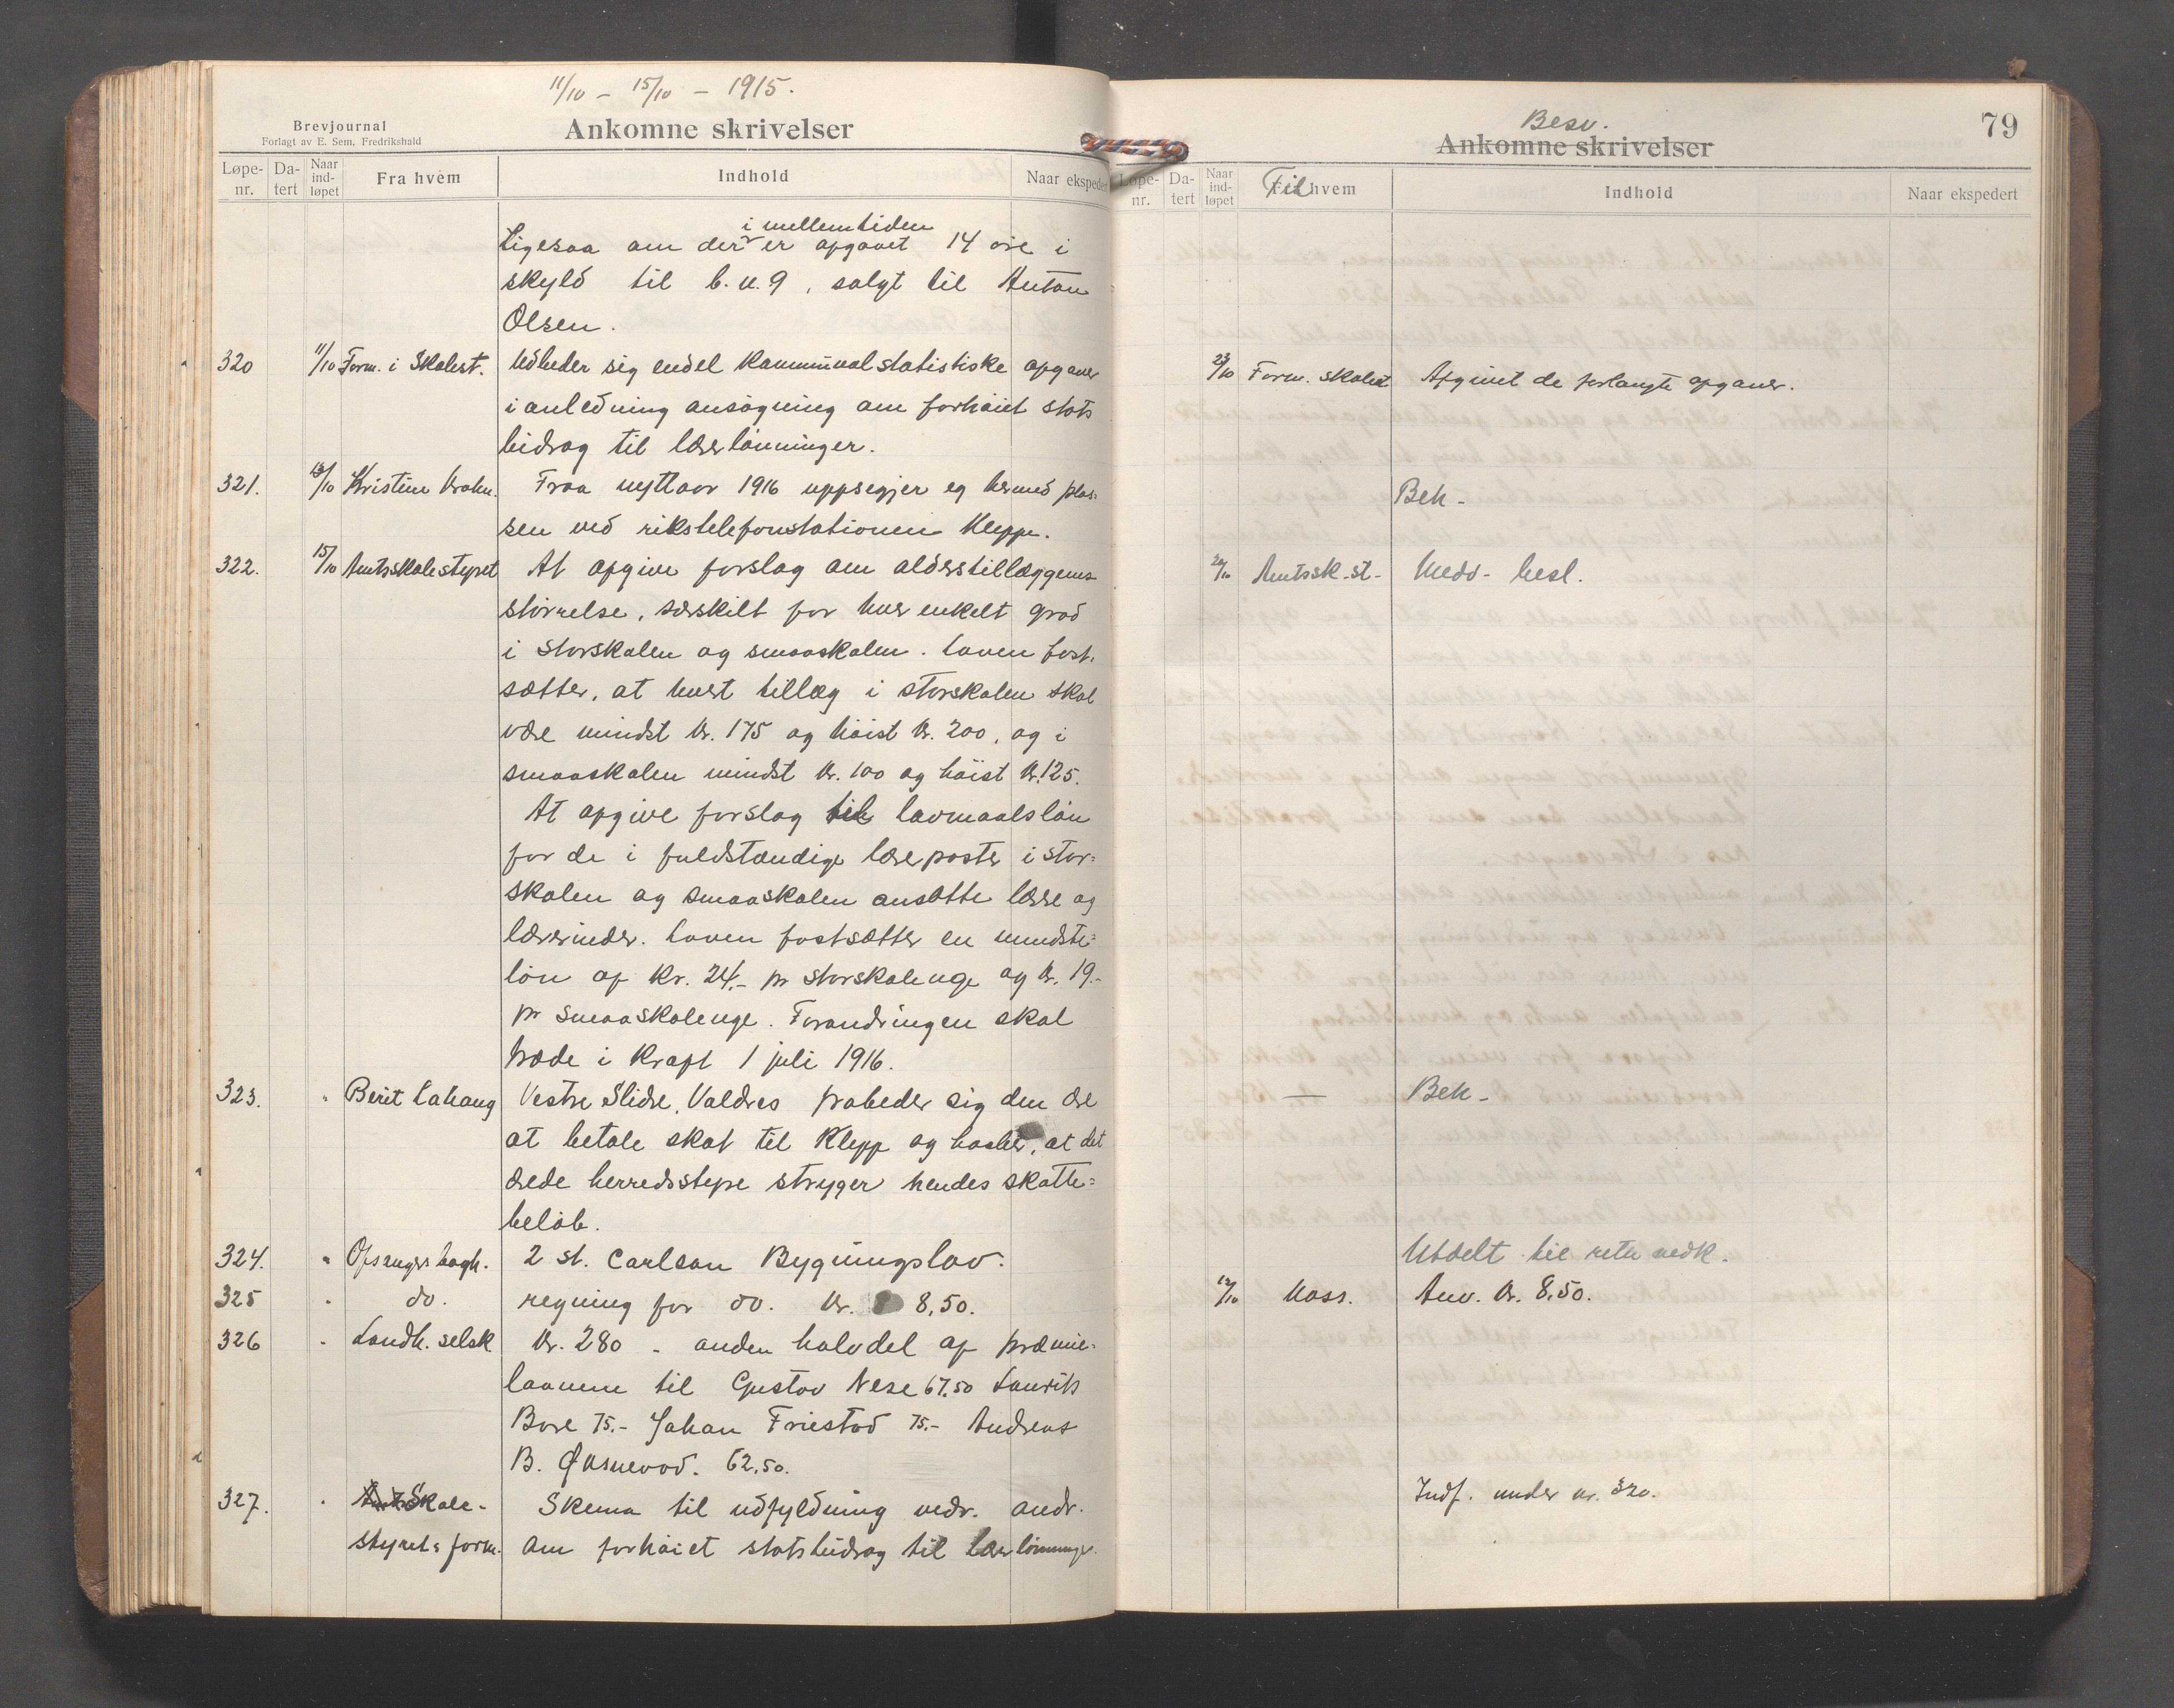 11/10 - 15/10 - 1915.
Brevjournal
Forlagt av E. Sem, Fredrikshald
Ankomne skrivelser
Løpe-nr. Da-tert Naar ind-løpet Fra hvem Indhold Naar ekspedert
i mellemtiden
Ligesaa om der er opgavet 14 øre i
skyld til b. n. 9, solgt til Anton
Olsen.
320 11/10 Form. i Skolest. Udbeder sig endel kommunalstatistiske opgaver
i anledning ansøgning om forhøiet stats
bidrag til lærerlønninger.
321. 13/10 Kristine Krohn. Fraa nyttaar 1916 uppsegjer eg hermed plas-
sen ved rikstelefonstationen Kleppe.
322. 15/10 Amtsskolestyret At opgive forslag om alderstillæggenes
størrelse, særskilt for hver enkelt grad
i storskolen og smaaskolen. Loven fast-
sætter, at hvert tillæg i storskolen skal
være mindst kr. 175 og høist kr. 200, og i
smaaskolen mindst kr. 100 og høist kr. 125.
At opgive forslag til lavmaalsløn
for de i fuldstændige lærerposter i stor=
skolen og smaaskolen ansatte lærere og
lærerinder. Loven fastsætter en mindste=
løn af kr. 24.- pr storskoleuge og kr. 19.-
pr smaaskoleuge. Forandringen skal
træde i kraft 1 juli 1916.
323. " Berit Lahaug Vestre Slidre, Valdres frabeder sig den ære
at betale skat til Klepp og haaber, at det
ærede herredsstyre stryger hendes skatte=
beløb.
324. " Opsanger bogh. 2 st. Carlson Bygningslov.
325 " do. regning for do. kr. 8,50.
326 " Landh. selsk kr. 280 - anden halvdel af præmie-
laanene til Gustav Nese 67.50 Laurits
Bore 75.- Johan Friestad 75.- Andreas
B. Øksnevad. 62,50.
327. " Skole-
styrets form. Skema til udfyldning vedr. andr.
om forhøiet statsbidrag til lærerlønninger.
79
Besv.
Ankomne skrivelser
Løpe-nr. Da-tert Naar ind-løpet Til hvem Indhold Naar ekspedert
23/10 Form. skolest Afgivet de forlangte opgaver.
Beh-
Amtssk-st- Medd- besl.
— Beh-
Utdelt til rette vedk.
Kass. Anv. kr. 8,50.
Indf. under nr. 320.